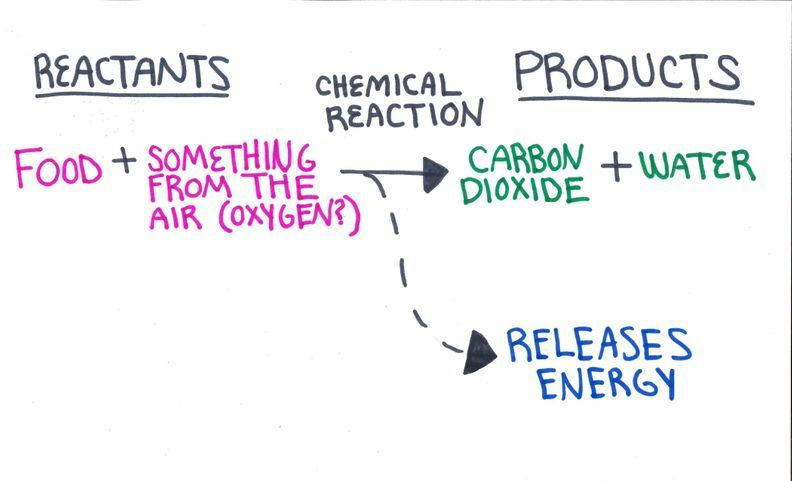 REACTANTS
CHEMICAL
REACTION
PRODUCTS
FOOD + SOMETHING
FROM THE
AIR (OXYGEN?)
CARBON
DIOXIDE + WATER
RELEASES
ENERGY